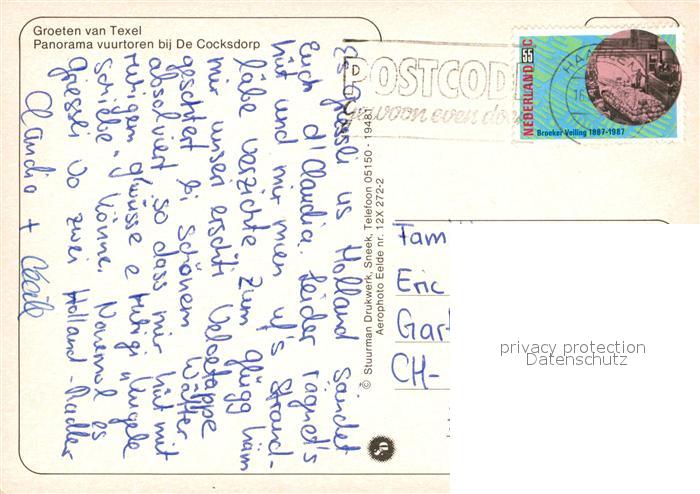 Groeten van Texel
Panorama vuurtoren bij De Cocksdorp
Es grüessli us Holland sändet
Euch d'Claudia. Leider rägnet's
hüt und mir müen uf's Strand-
läbe verzichte. Zum glügg häm
mir unseri erschti Veloetappe
geschtert bi schönem Wätter
absolviert so dass mir hüt mit
ruhigem gwüsse e ruhigi "Kugele
schiebe" könne. Novemol es
grüessli vo zwei Holland-Radler
Claudia + Cécile
© Stuurman Drukwerk, Sneek, Telefoon 05150 - 19481
Aerophoto Eelde nr. 12X 272-2
SD
POSTCODE
gewoon even doen
NEDERLAND
55 C
Broeker Veiling 1887-1987
Fam
Eric
Gart
CH-
privacy protection
Datenschutz